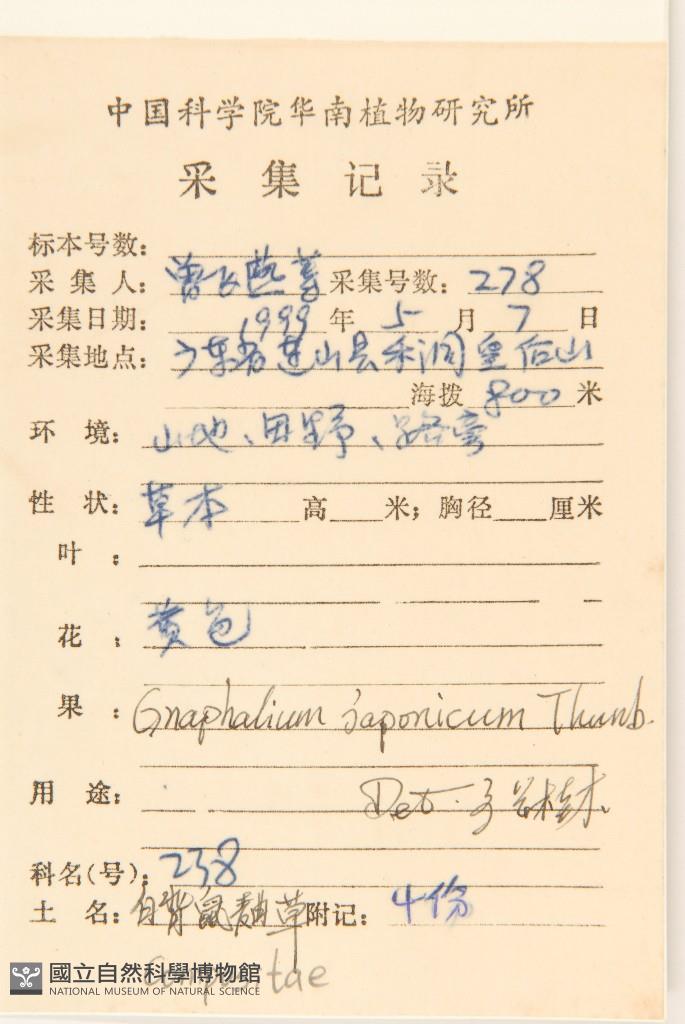 中国科学院华南植物研究所
采集记录
标本号数:
采集人: 曾飞燕等 采集号数: 278
采集日期: 1999 年 5 月 7 日
采集地点: 广东省连山县禾洞皇后山
海拨 800 米
环境: 山地、田野、路旁
性状: 草本 高 米; 胸径 厘米
叶:
花: 黄色
果: Gnaphalium japonicum Thunb.
用途:
Det.
科名(号): 238
土名: 白背鼠麹草 附记: 4份
Compositae
國立自然科學博物館
NATIONAL MUSEUM OF NATURAL SCIENCE